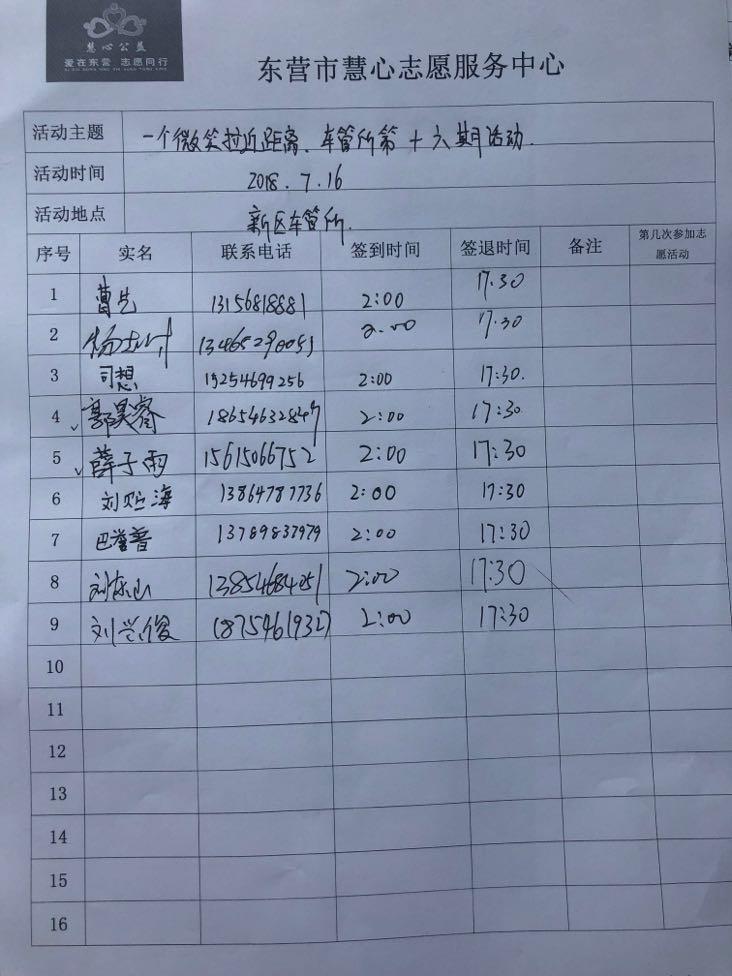 慧心公益
爱在东营 志愿同行
东营市慧心志愿服务中心
活动主题 一个微笑拉近距离、车管所第十六期活动.
活动时间 2018.7.16
活动地点 新区车管所.
序号 实名 联系电话 签到时间 签退时间 备注 第几次参加志愿活动
1 曹先 13156818881 2:00 17.30
2 2:00 17.30
3 司想 15254699256 2:00 17:30.
4 郭昊睿 18654632847 2:00 17:30
5 薛子雨 15615066752 2:00 17:30
6 刘贻海 13864787736 2:00 17:30
7 巴誉普 13789837979 2:00 17:30
8 刘东山 13854684251 2:00 17:30
9 刘兰俊 18754619327 2:00 17:30
10
11
12
13
14
15
16